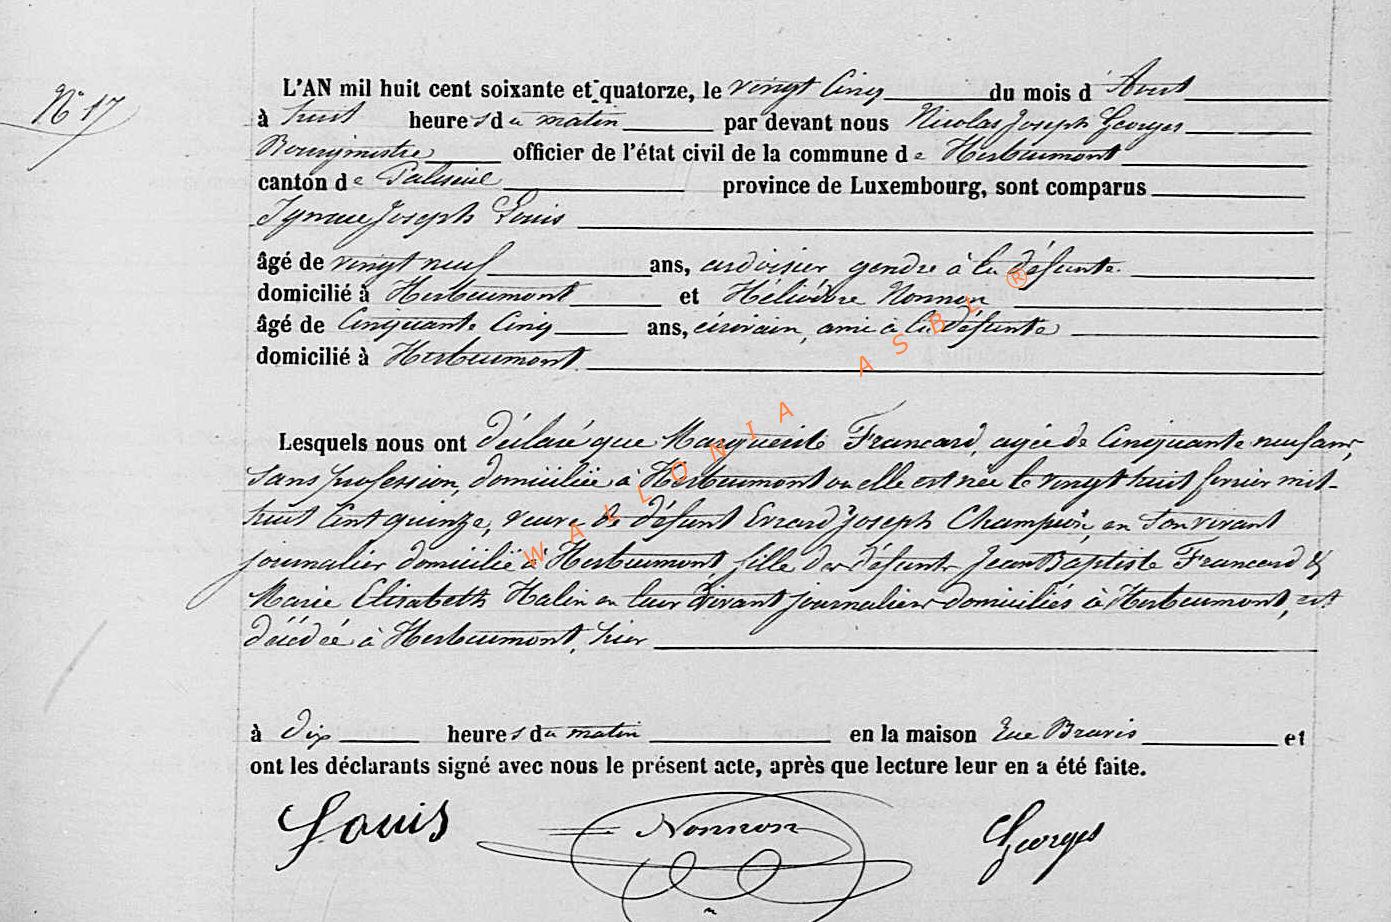 N° 17
L'AN mil huit cent soixante et quatorze, le vingt Cinq du mois d' Aout
à huit heures du matin par devant nous Nicolas Joseph Georges
Bourgmestre officier de l'état civil de la commune de Herbeumont
canton de Paliseul province de Luxembourg, sont comparus
Ignace Joseph Louis
âgé de vingt neuf ans, ardoisier gendre à la défunte
domicilié à Herbeumont et Héliodore Nonnon
âgé de Cinquante Cinq ans, écrivain, ami à la défunte
domicilié à Herbeumont
Lesquels nous ont déclaré que Marguerite Francard, agée de Cinquante neuf ans,
sans profession, domiciliée à Herbeumont ou elle est née le vingt huit fevrier mil-
huit Cent quinze, veuve de défunt Evrard Joseph Champion, en son vivant
journalier domicilié à Herbeumont, fille des défunts Jean Baptiste Francard &
Marie Elisabeth Halin en leur vivant journaliers domiciliés à Herbeumont, est
décédée à Herbeumont, hier
à dix heures du matin en la maison Rue et
ont les déclarants signé avec nous le présent acte, après que lecture leur en a été faite.
Louis Nonnon Georges
WALLONIA ASBL ®